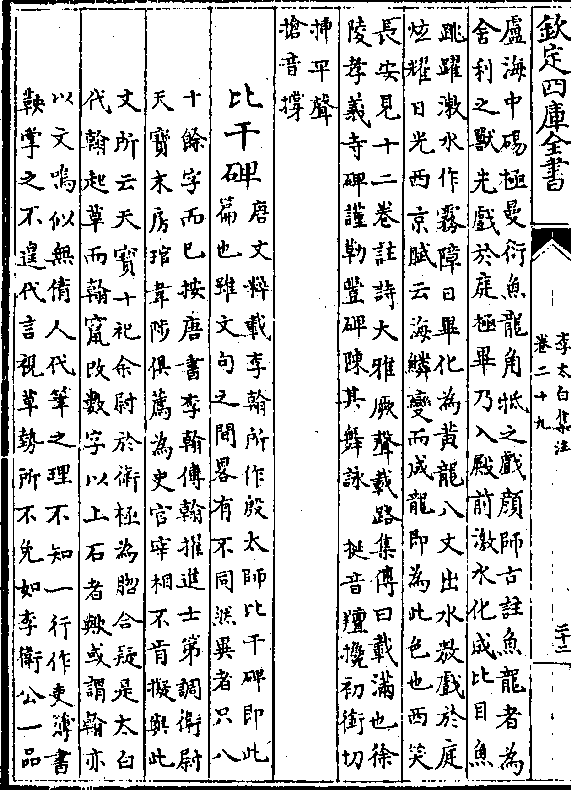 欽定四庫全書
李太白集注
卷二十九
盧海中碭極曼衍魚龍角牴之戲顔師古註魚龍者為
舍利之獸先戲於庭極畢乃入殿前激水化成比目魚
跳躍潄水作霧障日畢化為黃龍八丈出水敖戲於庭
炫耀日光西京賦云海鱗變而成龍即為此色也西笑
長安見十二卷註詩大雅厥聲載路集傳曰載滿也徐
陵孝義寺碑謹勒豐碑陳其舞詠 挻音羶攙初銜切
揷平聲
搶音撑
比干碑 唐文粹載李翰所作殷太師比干碑即此
篇也雖文句之間畧有不同然異者只八
十餘字而已按唐書李翰傳翰擢進士第調衛尉
天寶末房琯韋陟俱薦為史官宰相不肯擬與此
文所云天寶十祀余尉於衛極為脗合疑是太白
代翰起草而翰竄改數字以上石者歟或謂翰亦
以文鳴似無倩人代筆之理不知一行作吏簿書
鞅掌之不遑代言視草勢所不免如李衛公一品